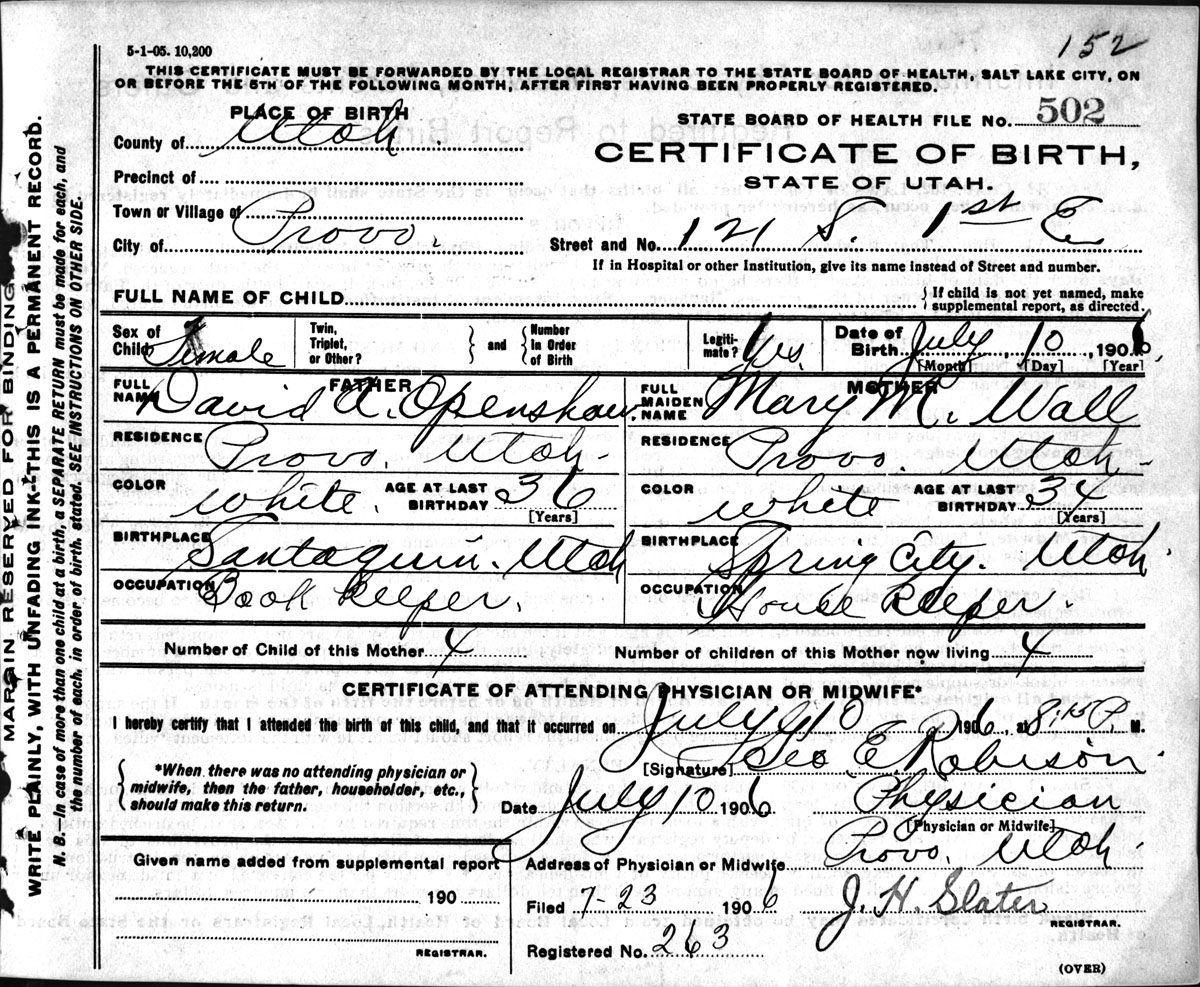 152
5-1-05. 10,200
THIS CERTIFICATE MUST BE FORWARDED BY THE LOCAL REGISTRAR TO THE STATE BOARD OF HEALTH, SALT LAKE CITY, ON
OR BEFORE THE 5TH OF THE FOLLOWING MONTH, AFTER FIRST HAVING BEEN PROPERLY REGISTERED.
PLACE OF BIRTH
STATE BOARD OF HEALTH FILE NO. 502
County of Utah.
CERTIFICATE OF BIRTH,
STATE OF UTAH.
Precinct of
Town or Village of Provo.
City of
Street and No. 121 S. 1st E
If in Hospital or other Institution, give its name instead of Street and number.
FULL NAME OF CHILD
{ If child is not yet named, make
supplemental report, as directed.
Sex of Child Female
Twin, Triplet, or Other? } and { Number in Order of Birth
Legiti-mate? Yes.
Date of Birth July 10, 1906
[Month] [Day] [Year]
FATHER
FULL NAME David A. Openshaw.
RESIDENCE Provo. Utah-
COLOR white. AGE AT LAST BIRTHDAY 36
[Years]
BIRTHPLACE Santaquin. Utah
OCCUPATION Book Keeper.
MOTHER
FULL MAIDEN NAME Mary M. Wall
RESIDENCE Provo. Utah-
COLOR white AGE AT LAST BIRTHDAY 34
[Years]
BIRTHPLACE Spring City. Utah.
OCCUPATION House Keeper.
Number of Child of this Mother 4
Number of children of this Mother now living 4
CERTIFICATE OF ATTENDING PHYSICIAN OR MIDWIFE*
I hereby certify that I attended the birth of this child, and that it occurred on July 10 1906, at 8:15 P. M.
{ *When there was no attending physician or
midwife, then the father, householder, etc.,
should make this return. }
[Signature] Geo. E. Robison.
Date July 10 1906 Physician
[Physician or Midwife]
Given name added from supplemental report
190
REGISTRAR.
Address of Physician or Midwife Provo, Utah.
Filed 7-23 1906 J. H. Slater
REGISTRAR.
Registered No. 263
(OVER)
MARGIN RESERVED FOR BINDING
WRITE PLAINLY, WITH UNFADING INK-THIS IS A PERMANENT RECORD.
N. B.—In case of more than one child at a birth, a SEPARATE RETURN must be made for each, and
the number of each, in order of birth, stated. SEE INSTRUCTIONS ON OTHER SIDE.